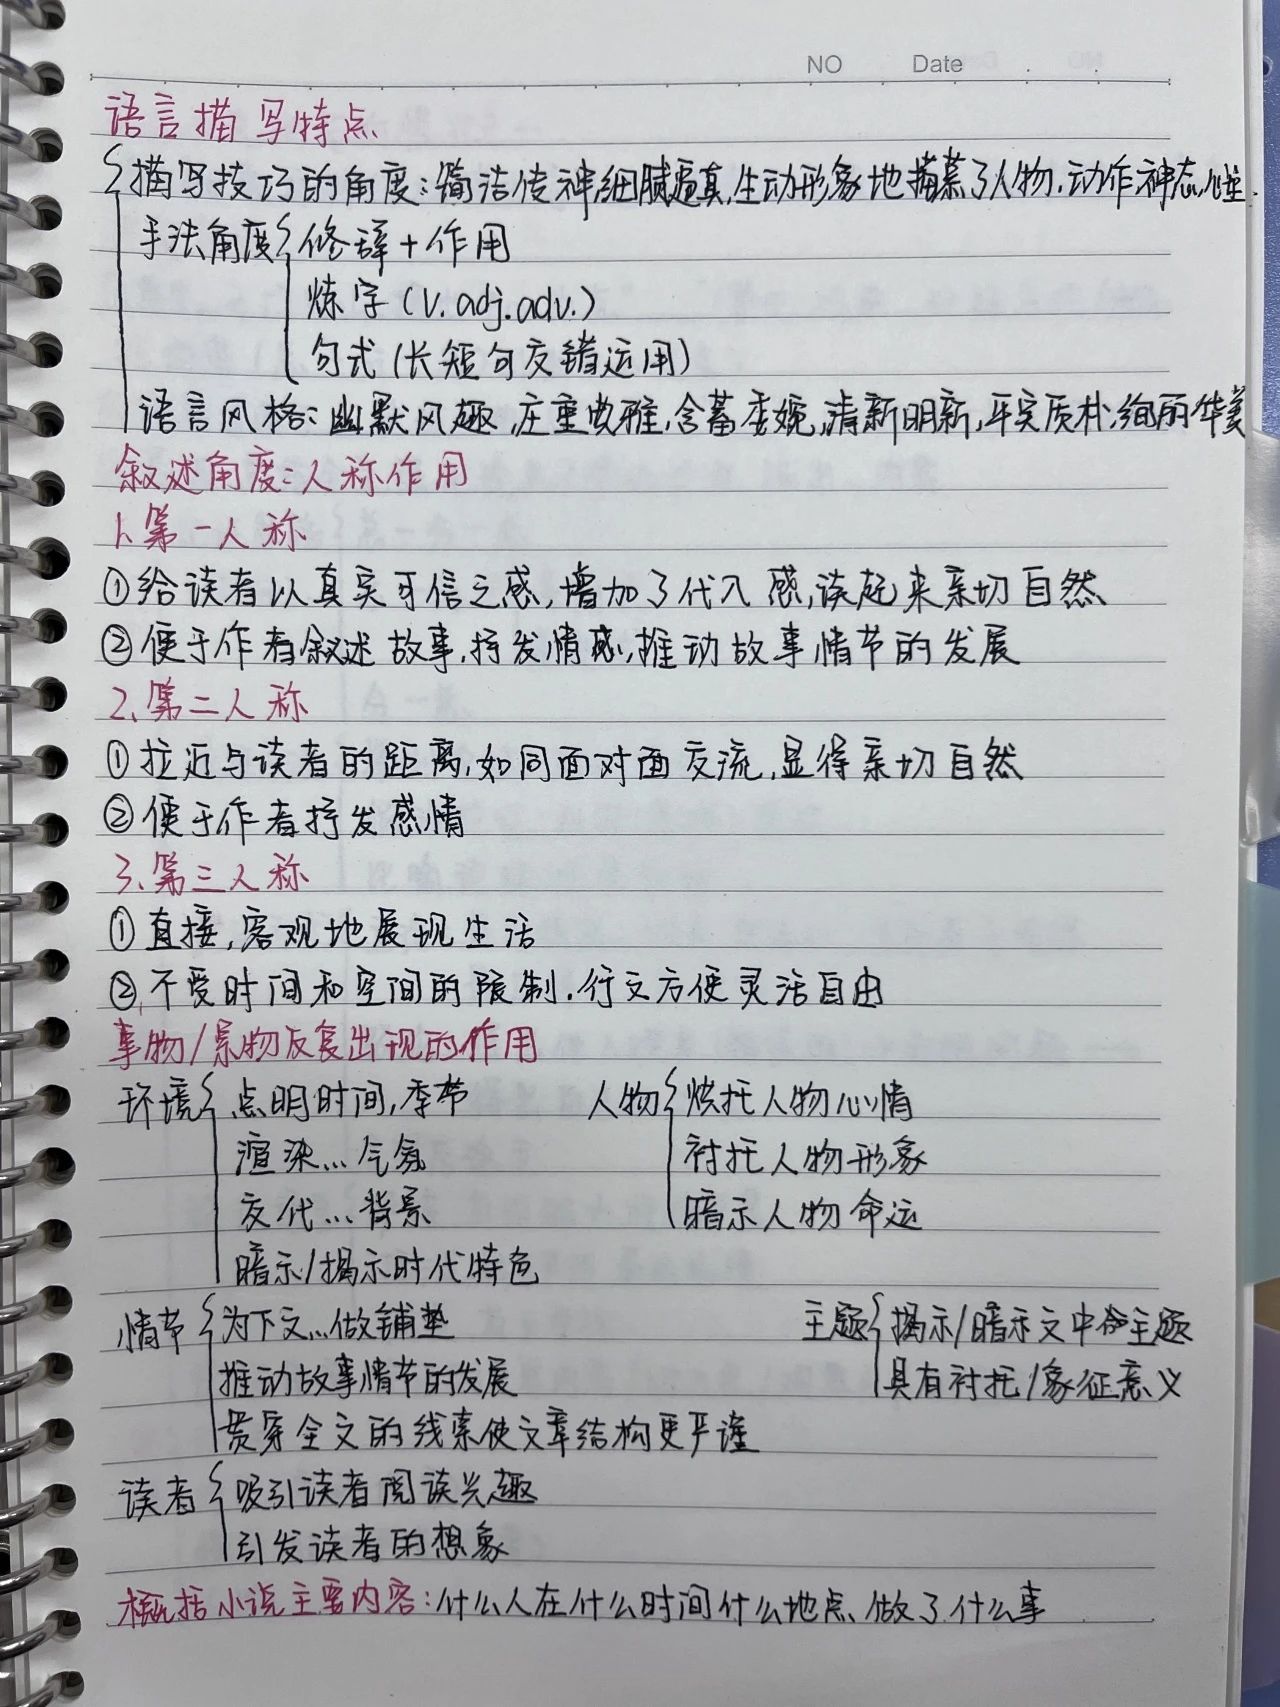 NO Date
语言描写特点
描写技巧的角度:简洁传神,细腻逼真,生动形象地描摹了人物,动作神态,心理.
手法角度 修辞+作用
炼字(v.adj.adv.)
句式(长短句交错运用)
语言风格:幽默风趣,庄重典雅,含蓄委婉,清新明新,平实质朴,绚丽华美
叙述角度:人称作用
1、第一人称
①给读者以真实可信之感,增加了代入感,读起来亲切自然
②便于作者叙述故事,抒发情感,推动故事情节的发展
2、第二人称
①拉近与读者的距离,如同面对面交流,显得亲切自然
②便于作者抒发感情
3、第三人称
①直接,客观地展现生活
②不受时间和空间的限制,行文方便灵活自由
事物/景物反复出现的作用
环境 点明时间,季节 人物 烘托人物心情
渲染...气氛 衬托人物形象
交代...背景 暗示人物命运
暗示/揭示时代特色
情节 为下文...做铺垫 主题 揭示/暗示文中主题
推动故事情节的发展 具有衬托/象征意义
贯穿全文的线索使文章结构更严谨
读者 吸引读者阅读兴趣
引发读者的想象
概括小说主要内容:什么人在什么时间什么地点做了什么事